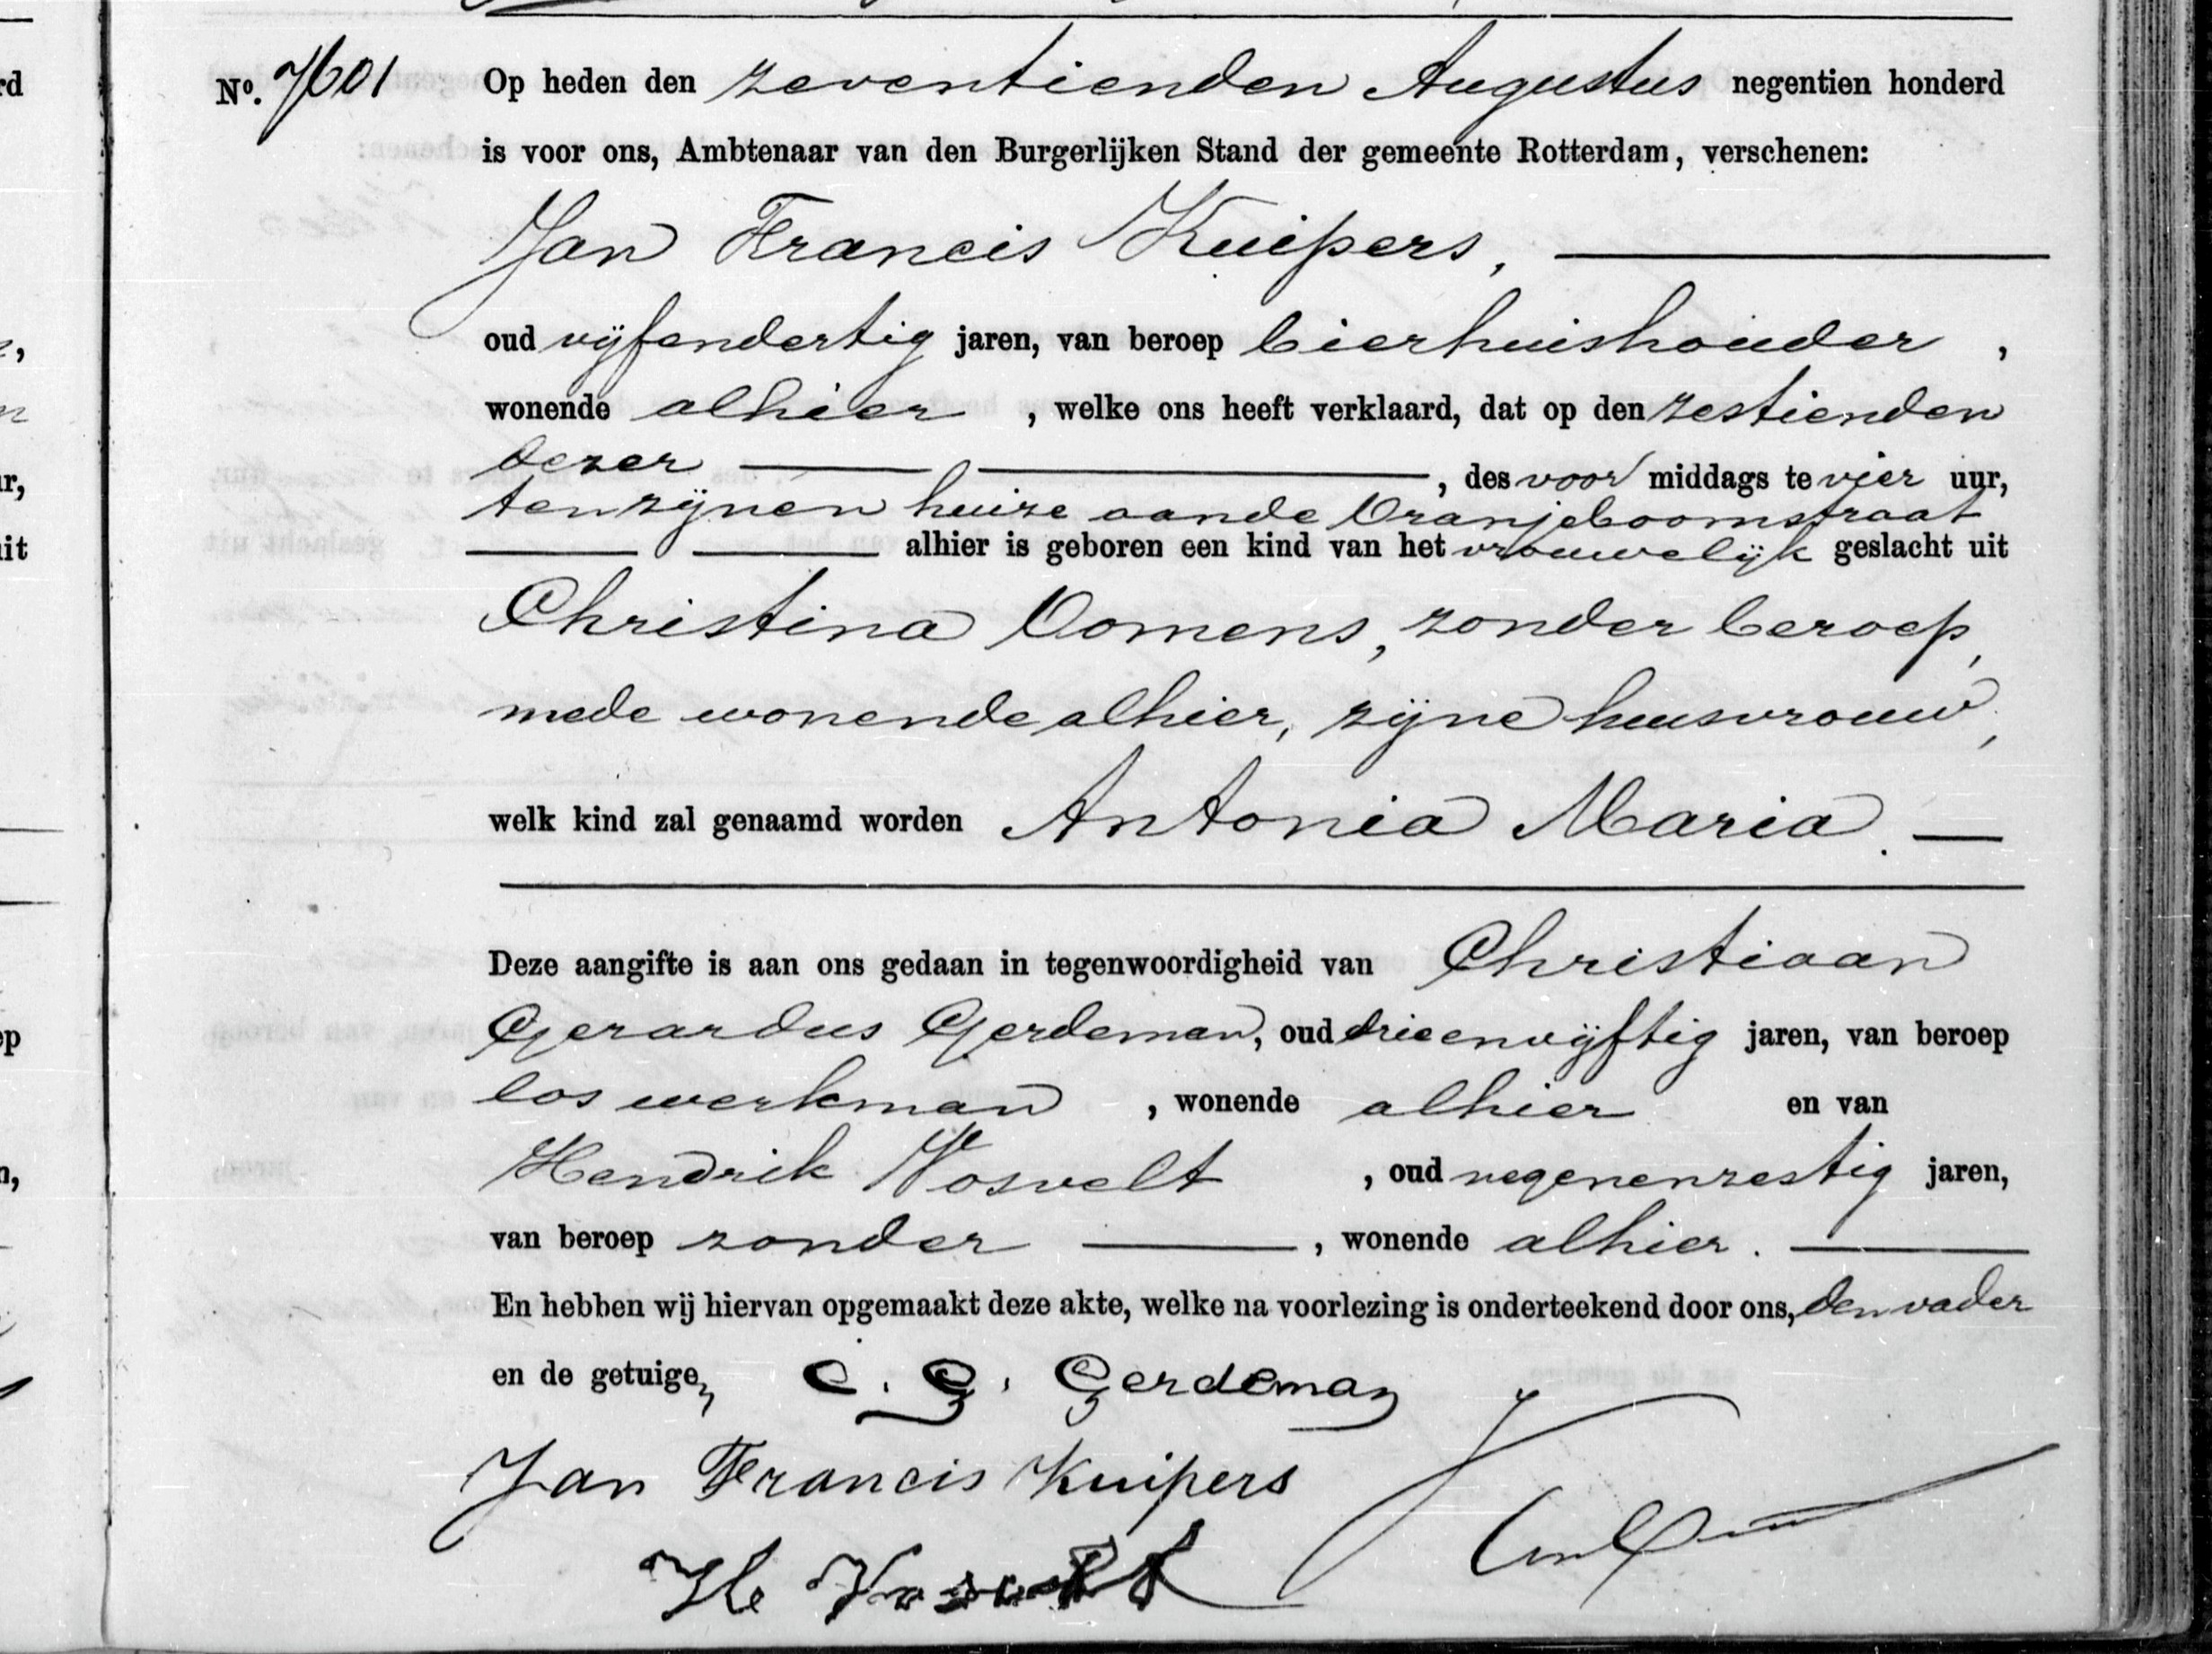 No. 7601 Op heden den zeventienden Augustus negentien honderd
is voor ons, Ambtenaar van den Burgerlijken Stand der gemeente Rotterdam, verschenen:
Jan Francis Kuipers,
oud vijfendertig jaren, van beroep bierhuishouder,
wonende alhier, welke ons heeft verklaard, dat op den zestienden
dezer, des voor middags te vier uur,
ten zijnen huize aan de Oranjeboomstraat
alhier is geboren een kind van het vrouwelijk geslacht uit
Christina Oomens, zonder beroep,
mede wonende alhier, zijne huisvrouw,
welk kind zal genaamd worden Antonia Maria.
Deze aangifte is aan ons gedaan in tegenwoordigheid van Christiaan
Gerardus Gerdeman, oud drieenvijftig jaren, van beroep
los werkman, wonende alhier en van
Hendrik Vosvelt, oud negenenzestig jaren,
van beroep zonder, wonende alhier.
En hebben wij hiervan opgemaakt deze akte, welke na voorlezing is onderteekend door ons, den vader
en de getuigen C. G. Gerdeman
Jan Francis Kuipers
H Vosvelt
rd
it
r,
ep
n,